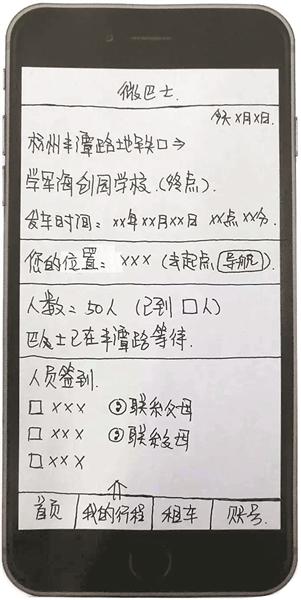 微巴士
今天X月X日.
杭州丰潭路地铁口⇒
学军海创园学校.(终点).
发车时间: xx年xx月xx日 xx点xx分.
您的位置: xxx (去起点,导航).
人数: 50人 (已到 口人)
巴士已在丰潭路等待.
人员签到.
口 xxx ①联系父母
口 xxx ①联系父母
口 xxx
首页 我的行程 租车 账号.